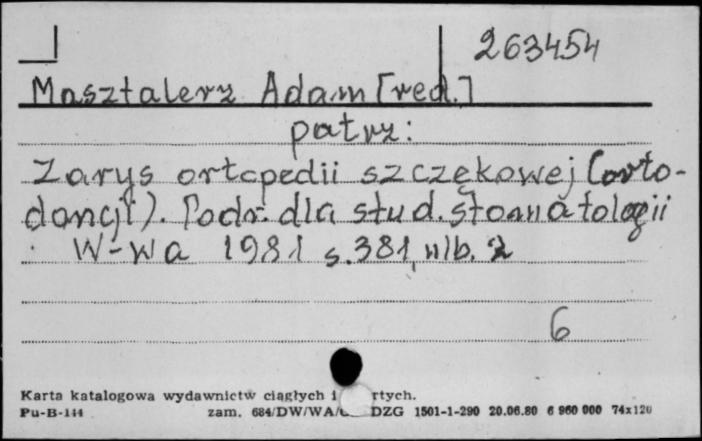 263454
Masztalerz Adam [red.]
patrz:
Zarys ortopedii szczękowej (orto-
doncji). Podr. dla stud. stomatologii
W-wa 1981 s.381, nlb. 2
6
Karta katalogowa wydawnictw ciągłych i rtych.
Pu-B-144 zam. 684/DW/WA/ DZG 1501-1-290 20.06.80 6 960 000 74x120